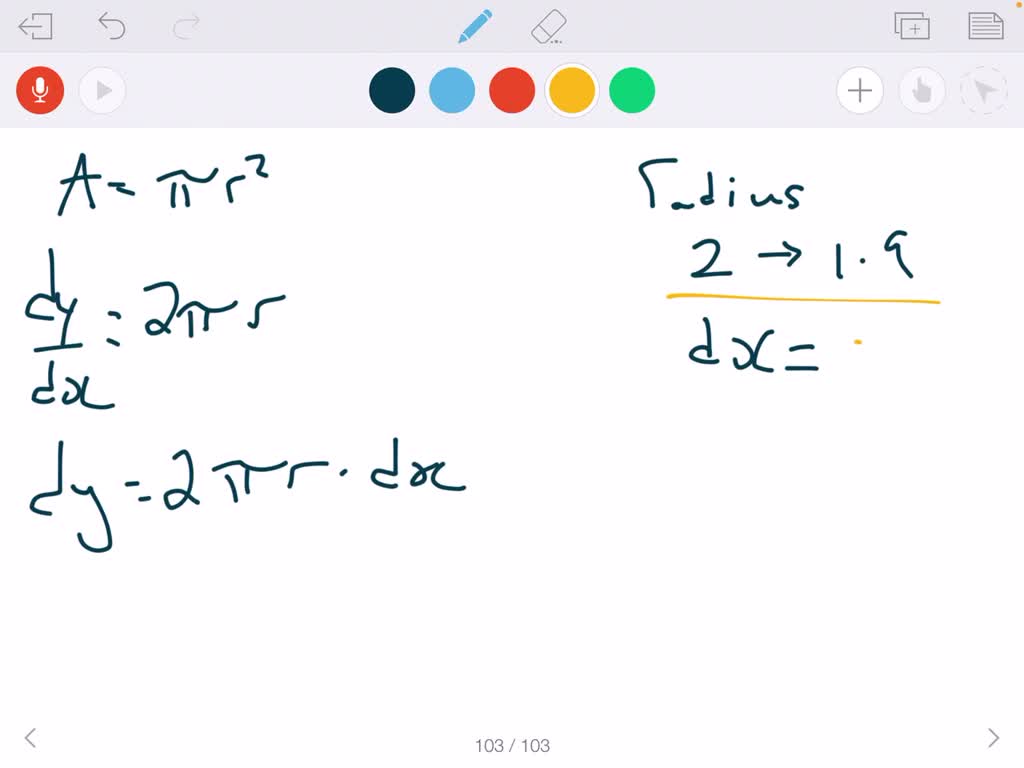 A = πr²
dy/dx = 2πr
dy = 2πr · dx
radius
2 → 1.9
dx =
103 / 103